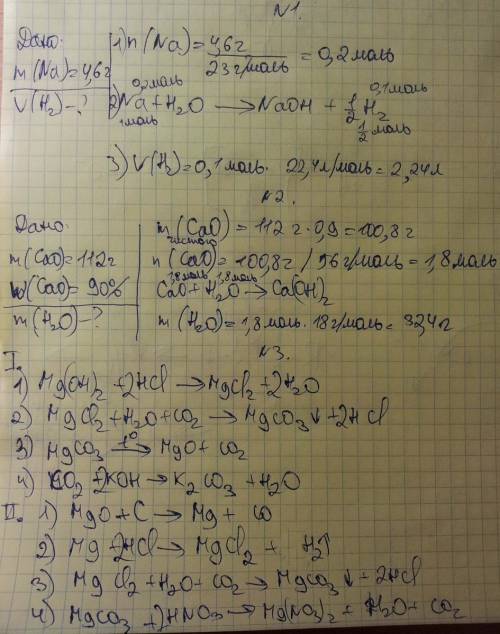 №1.
Дано: 1) n(Na) = 4,6г / 23 г/моль = 0,2 моль
m(Na) = 4,6г
V(H₂) - ? 0,2 моль 0,1 моль
2) Na + H₂O → NaOH + 1/2 H₂
1 моль 1/2 моль
3) V(H₂) = 0,1 моль · 22,4 л/моль = 2,24 л
№2.
Дано: m(CaO) = 112 г · 0,9 = 100,8 г
чистого
m(CaO) = 112 г n(CaO) = 100,8 г / 56 г/моль = 1,8 моль
1,8 моль 1,8 моль
W(CaO) = 90% CaO + H₂O → Ca(OH)₂
m(H₂O) - ? m(H₂O) = 1,8 моль · 18 г/моль = 32,4 г
№3.
I.
1) Mg(OH)₂ + 2HCl → MgCl₂ + 2H₂O
2) MgCl₂ + H₂O + CO₂ → MgCO₃↓ + 2HCl
3) MgCO₃ t° → MgO + CO₂
4) CO₂ + 2KOH → K₂CO₃ + H₂O
II. 1) MgO + C → Mg + CO
2) Mg + 2HCl → MgCl₂ + H₂↑
3) MgCl₂ + H₂O + CO₂ → MgCO₃↓ + 2HCl
4) MgCO₃ + 2HNO₃ → Mg(NO₃)₂ + H₂O + CO₂